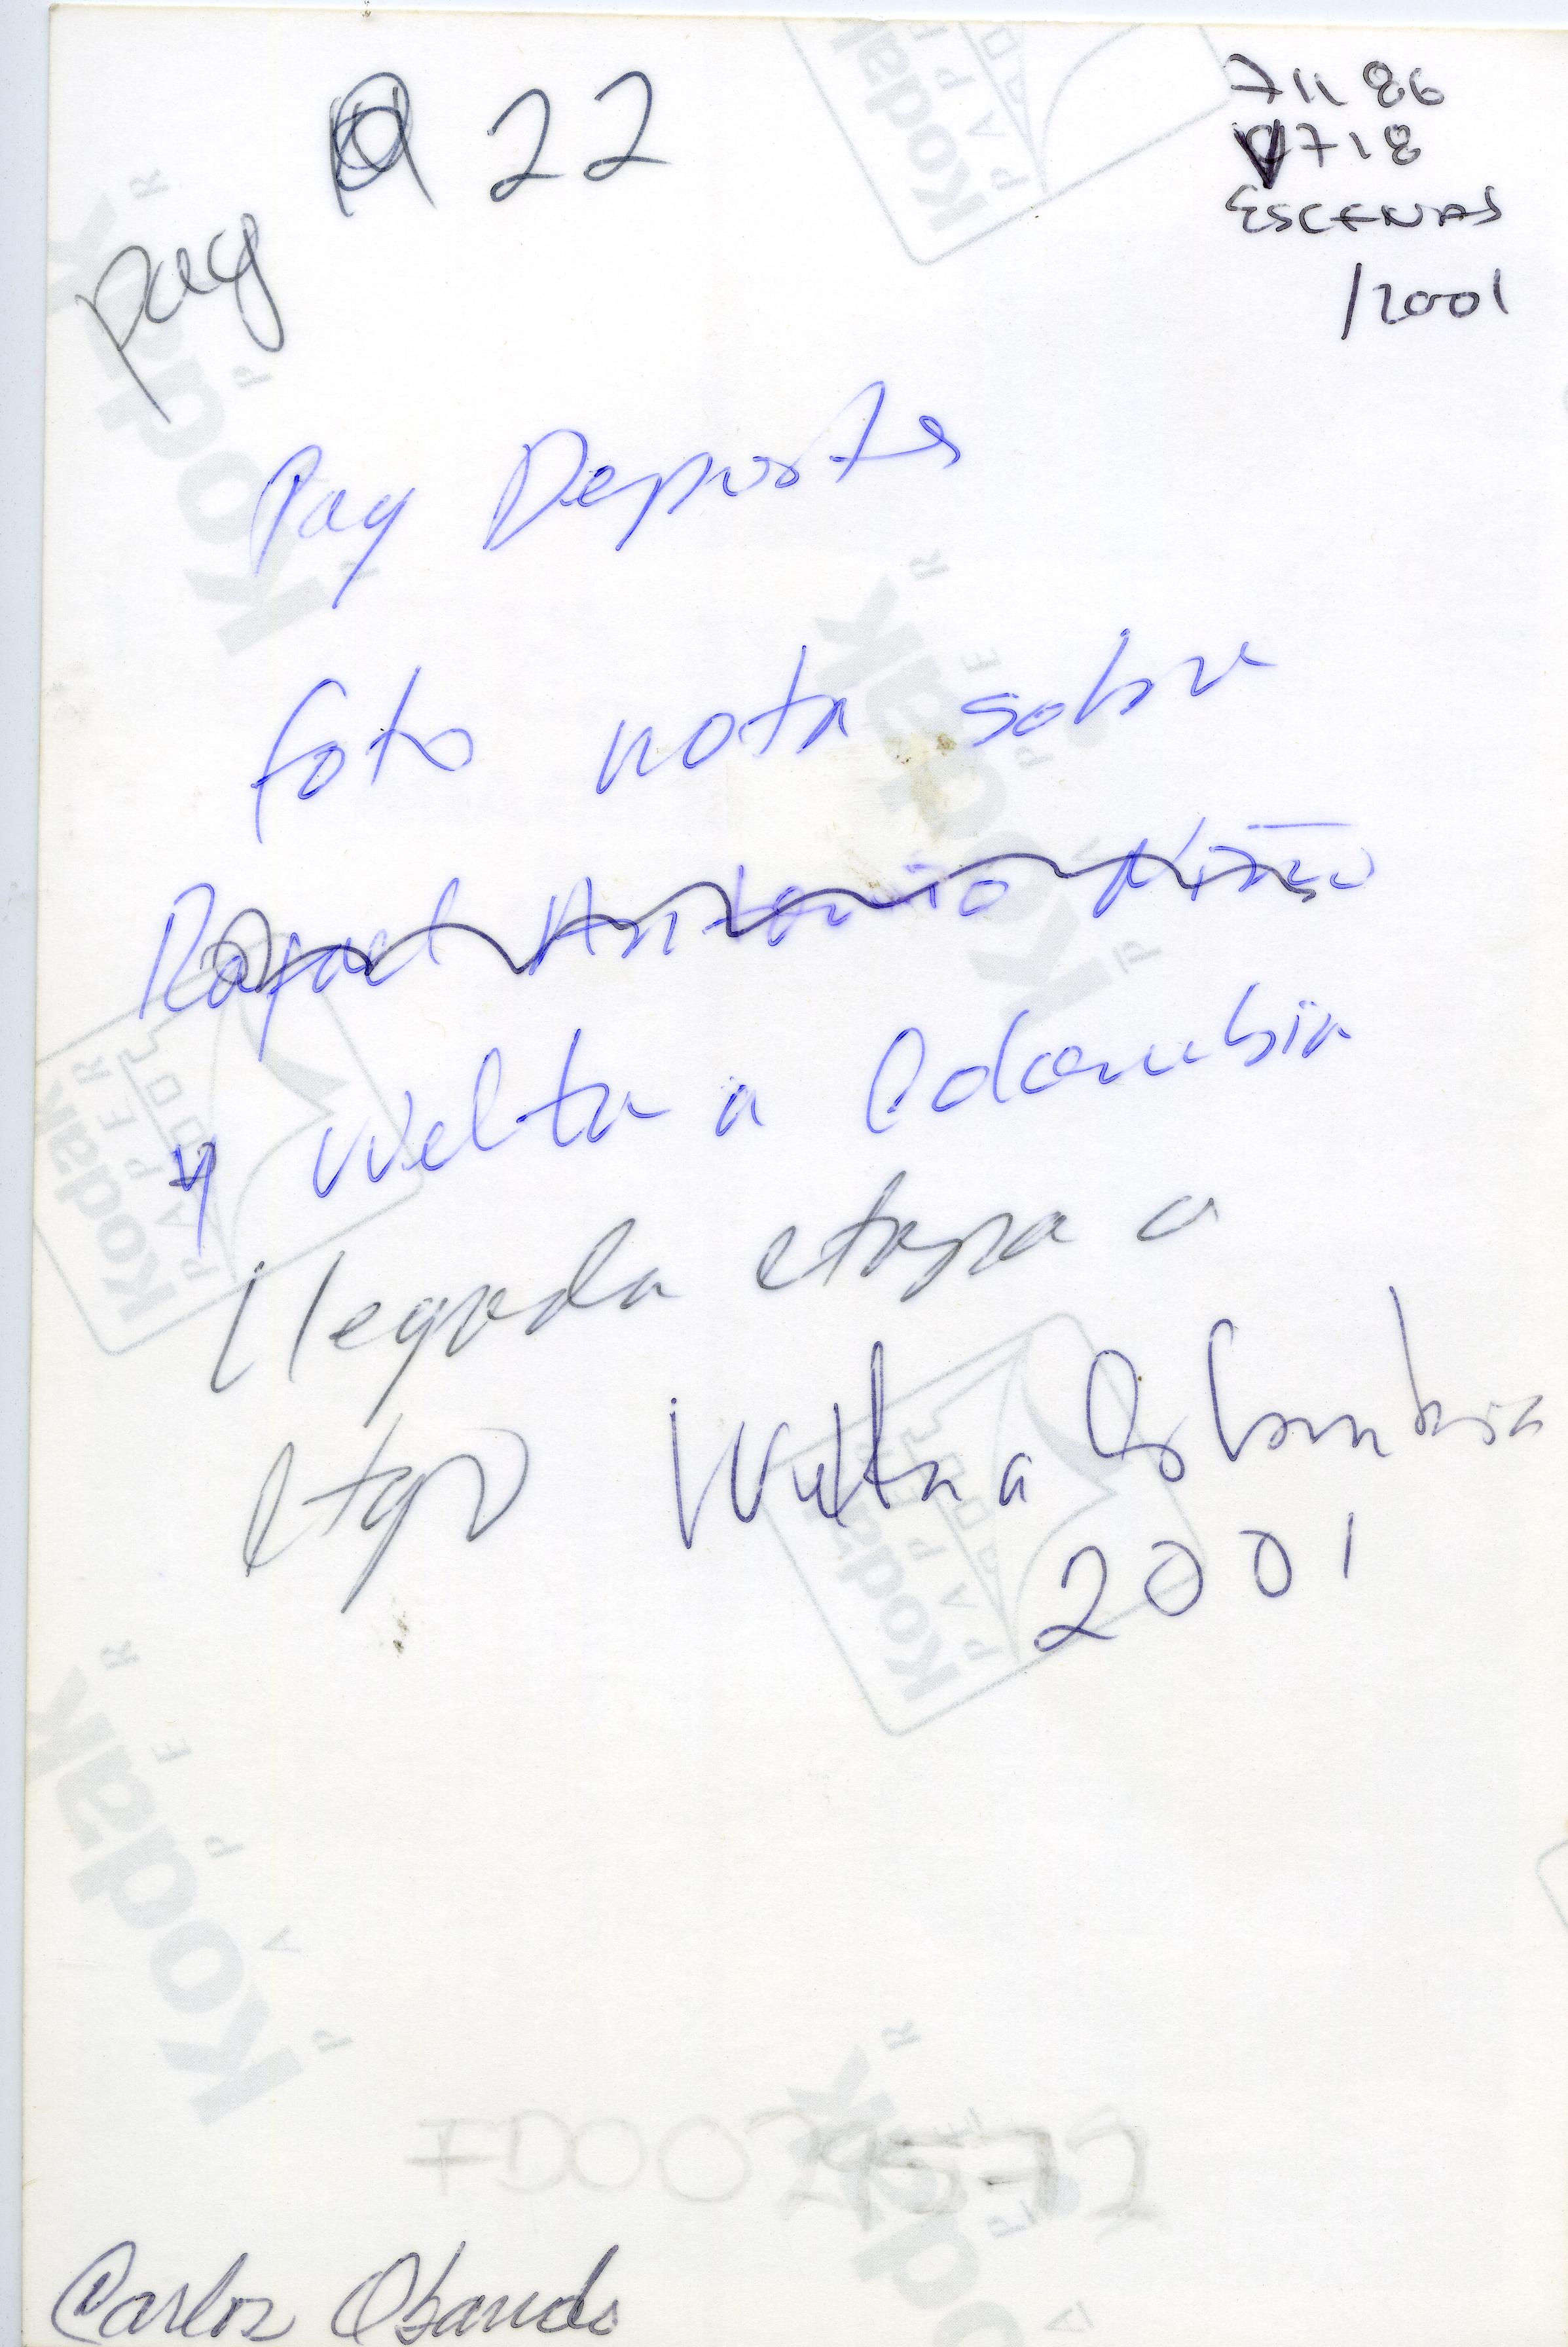 pag 22
71186
V718
ESCENAS
/2001
Pag Deportes
foto nota sobre
Rafael Antonio Niño
y vuelta a Colombia
llegada etapa a
Vuelta a Colombia
2001
Carlos Obando
Kodak
PAPER
PAPEL